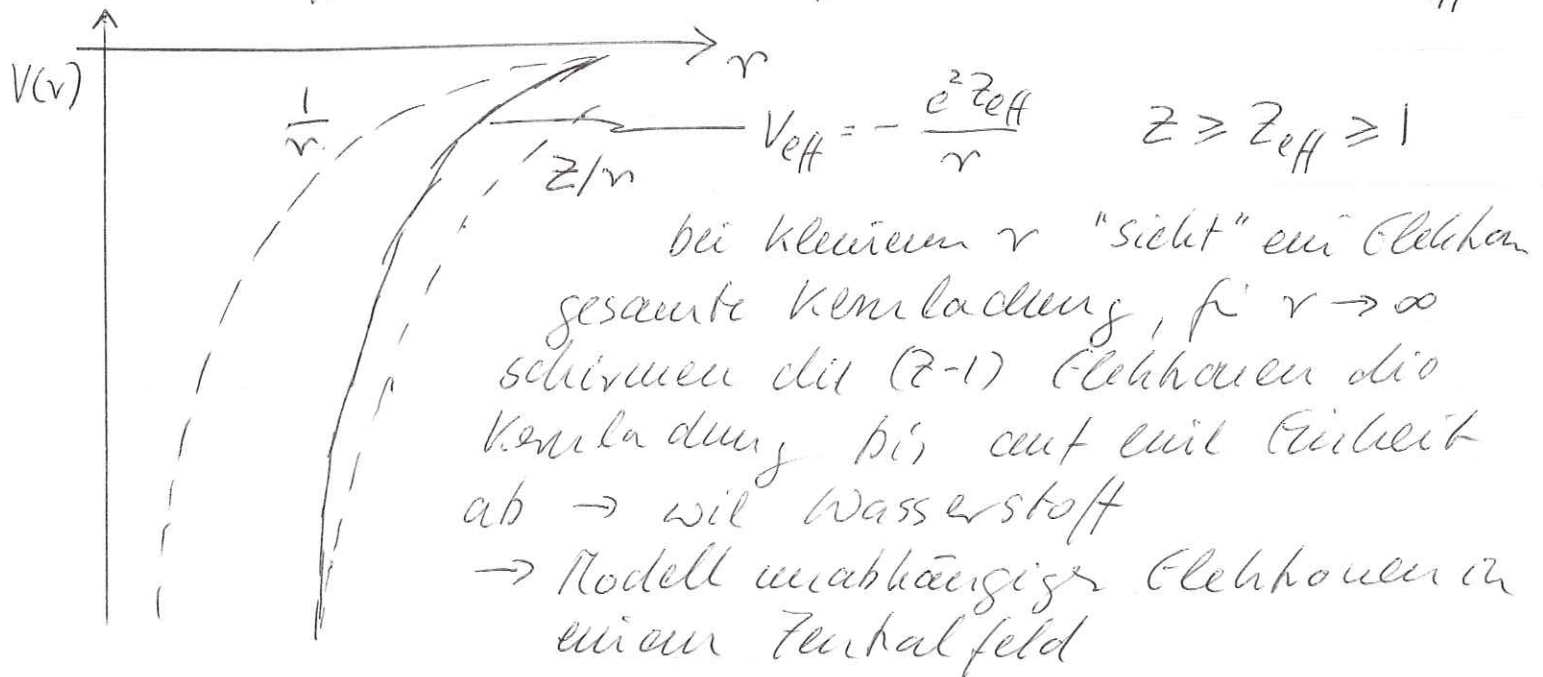 r
V(r)
1/r
Z/r
V_eff = - e² Z_eff / r    Z ≥ Z_eff ≥ 1
bei kleinem r "sieht" ein Elektron
gesamte Kernladung, für r → ∞
schirmen die (Z-1) Elektronen die
Kernladung bis auf eine Einheit
ab → wie Wasserstoff
→ Modell unabhängiger Elektronen in
einem Zentralfeld